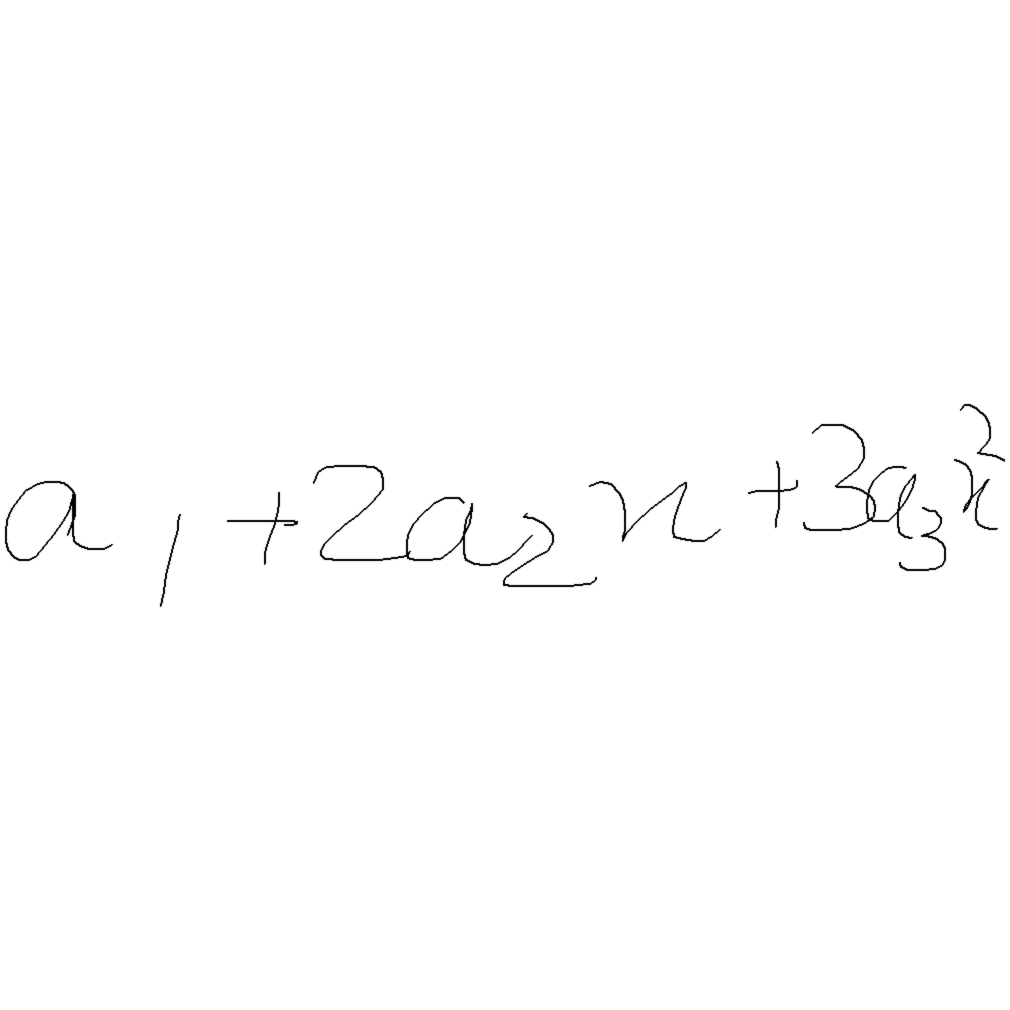 a₁+2a₂x+3a₃x²